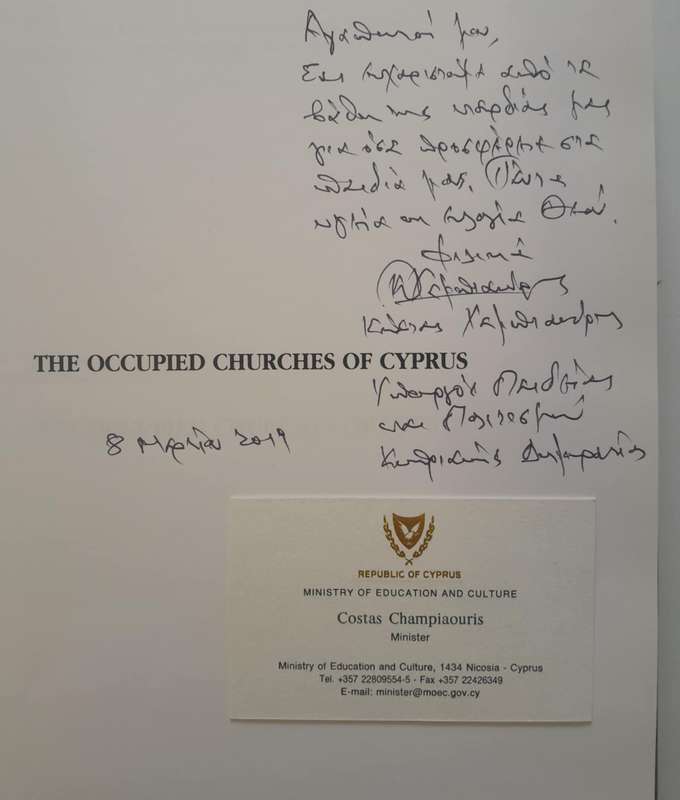 Αγαπητοί μου,
Σας ευχαριστούμε από τα
βάθη της καρδιάς μας
για όσα προσφέρετε στα
παιδιά μας. Πάντα
υγεία και ευλογία Θεού.
Φιλικά
Κώστας Χαμπιαούρης
THE OCCUPIED CHURCHES OF CYPRUS
Υπουργός Παιδείας
και Πολιτισμού
8 Μαρτίου 2019
Κυπριακής Δημοκρατίας
REPUBLIC OF CYPRUS
MINISTRY OF EDUCATION AND CULTURE
Costas Champiaouris
Minister
Ministry of Education and Culture, 1434 Nicosia - Cyprus
Tel. +357 22809554-5 - Fax +357 22426349
E-mail: minister@moec.gov.cy